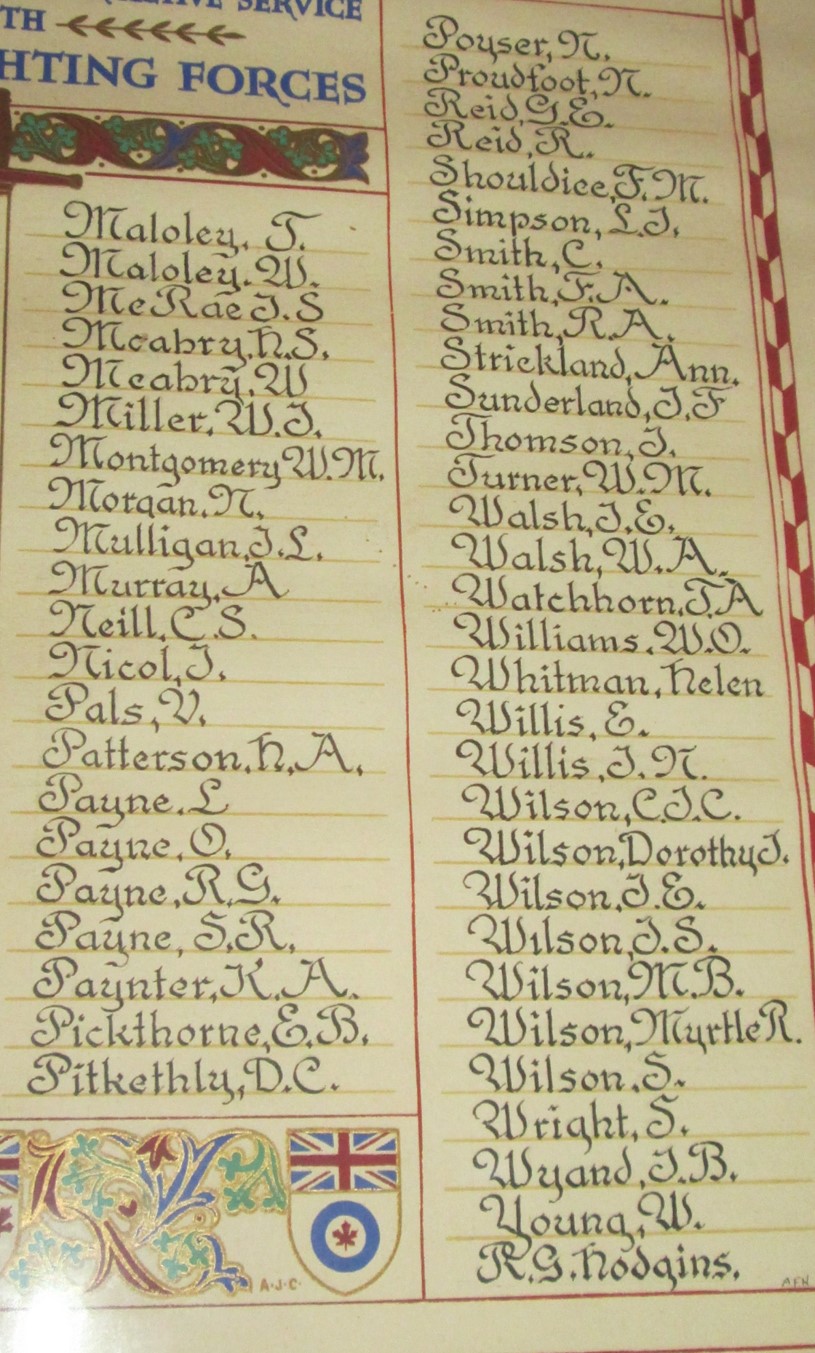 SERVICE
TH
HTING FORCES
Maloley, T.
Maloley. W.
McRae J.S
Mcabry, H.S.
Mcabry, W
Miller, W.J.
Montgomery W.M.
Morgan, N.
Mulligan, J.L.
Murray, A
Neill, C.S.
Nicol, J.
Pals, V.
Patterson, H.A.
Payne. L
Payne, O.
Payne, R.G.
Payne, S.R.
Paynter, K.A.
Pickthorne, E.B.
Pitkethly, D.C.
A.J.C.
Poyser, N.
Proudfoot, N.
Reid, G.E.
Reid, R.
Shouldice, F.M.
Simpson, L.J.
Smith, C.
Smith, F.A.
Smith, R.A.
Strickland, Ann.
Sunderland, J.F
Thomson, J.
Turner, W.M.
Walsh, J.E.
Walsh, W.A.
Watchhorn, T.A
Williams, W.O.
Whitman, Helen
Willis, E.
Willis, J.N.
Wilson, C.J.C.
Wilson, Dorothy J.
Wilson, J.E.
Wilson, J.S.
Wilson, M.B.
Wilson, Myrtle R.
Wilson, S.
Wright, S.
Wyand, J.B.
Young, W.
R.G. Hodgins.